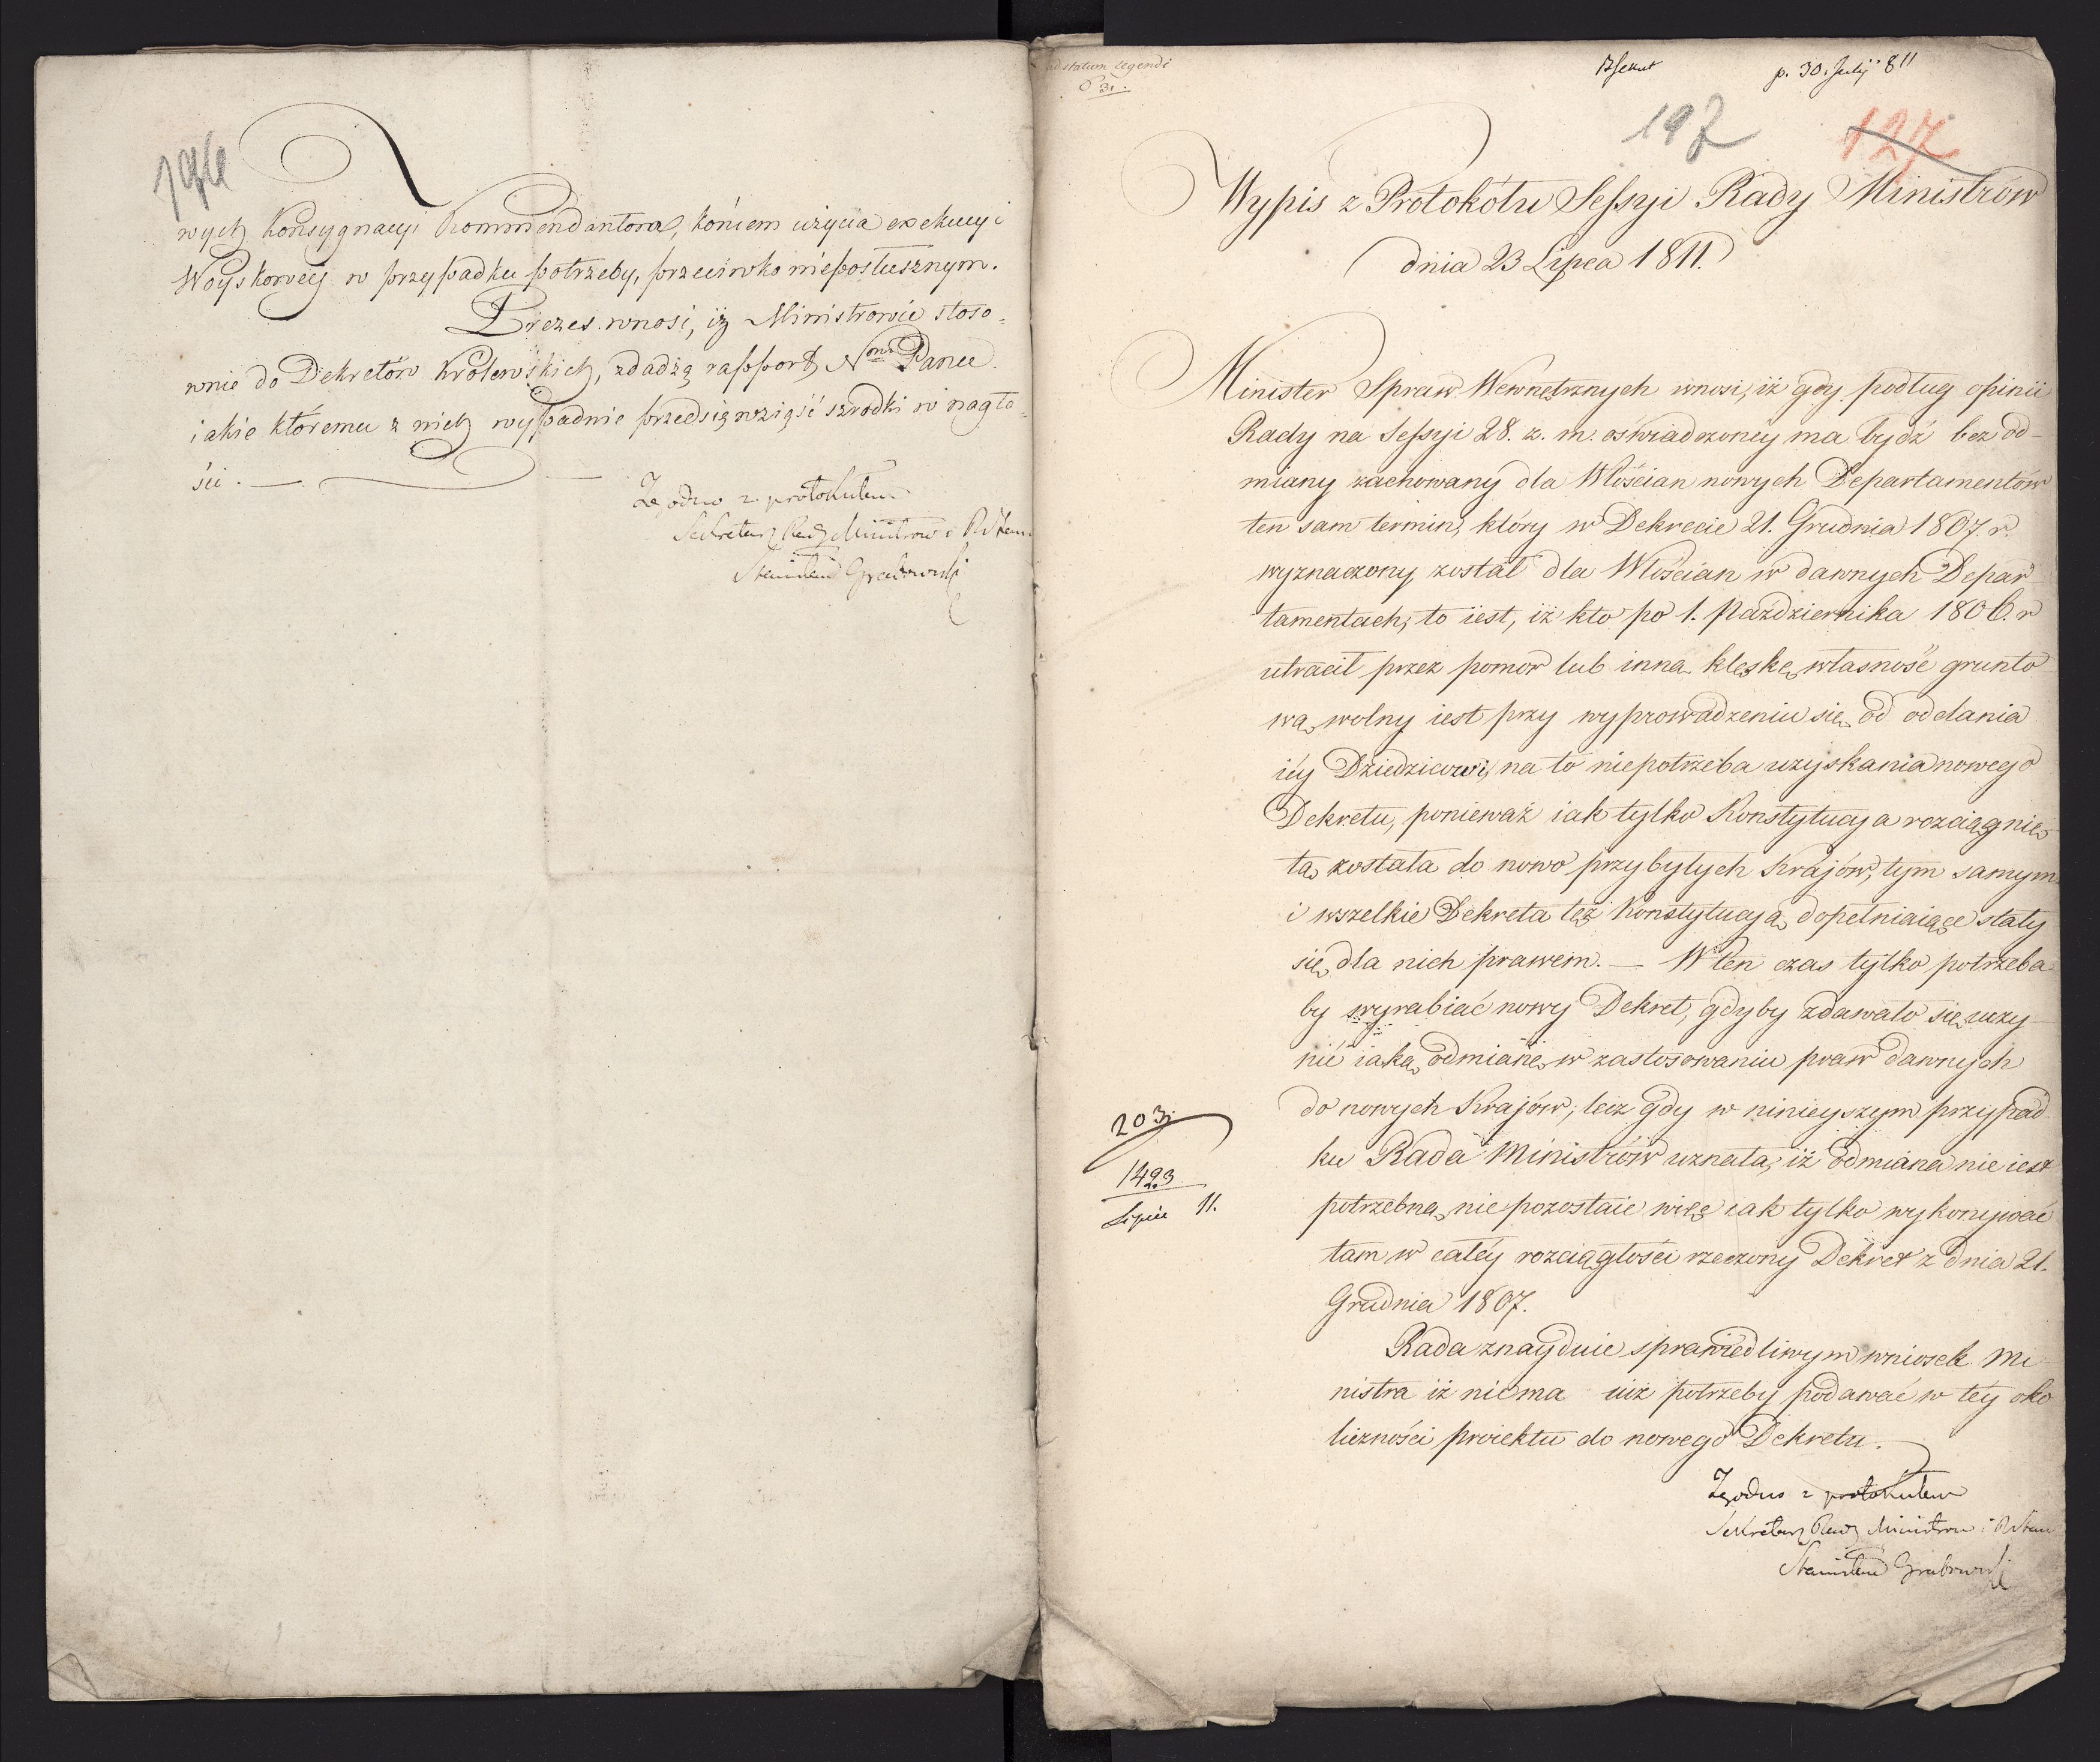 196
wych Konsygnacyi Kommendantom, końcem użycia exekucyi
Woyskowéy w przypadku potrzeby, przeciwko nieposłusznym.
Prezes wnosi, iż Ministrowie stoso=
wnie do Dekretów Królewskich, zdadzą rapport Nmu Panu
iakie któremu z nich wypadnie przedsięwziąść szrodki w nagło=
ści. —
Zgodno z protokułem
Sekretarz Rady Ministrow i R Stanu
Stanisław Grabowski
ad statum legendi
31.
p. 30. July 811
197
127
Wypis z Protokółu Sessyi Rady Ministrów
dnia 23 Lipca 1811.
Minister Spraw Wewnętrznych wnosi, iż gdy podług opinii
Rady na Sessyi 28. z. m. oświadczoney ma bydź bez od-
miany zachowany dla Włościan nowych Departamentów
ten sam termin, który w Dekrecie 21. Grudnia 1807. r.
wyznaczony został dla Włościan w dawnych Depar-
tamentach; to iest, iż kto po 1. Października 1806. r
utracił przez pomor lub inną klęskę własność grunto
wą, wolny iest przy wyprowadzeniu się od oddania
iéy Dziedzicowi, na to niepotrzeba uzyskania nowego
Dekretu, ponieważ iak tylko Konstytucya rozciągnię
tą została do nowo przybyłych Krajów, tym samym
i wszelkie Dekreta tęż Konstytucyą dopełniaiące stały
się dla nich prawem. — W ten czas tylko potrzeba
by wyrabiać nowy Dekret, gdyby zdawało się uczy-
nić iaką odmianę w zastosowaniu praw dawnych
do nowych Krajów; lecz gdy w ninieyszym przypad
ku Rada Ministrów uznała, iż odmiana nie iest
potrzebną, nie pozostaie więc iak tylko wykonywać
tam w całéy rozciągłości rzeczony Dekret z dnia 21.
Grudnia 1807.
Rada znayduie sprawiedliwym wniosek Mi
nistra iż niema iuż potrzeby podawać w téy oko
liczności proiektu do nowego Dekretu.
203
1423
Lipiec 11.
Zgodno z protokułem
Sekretarz Rady Ministrow i R Stanu
Stanisław Grabowski